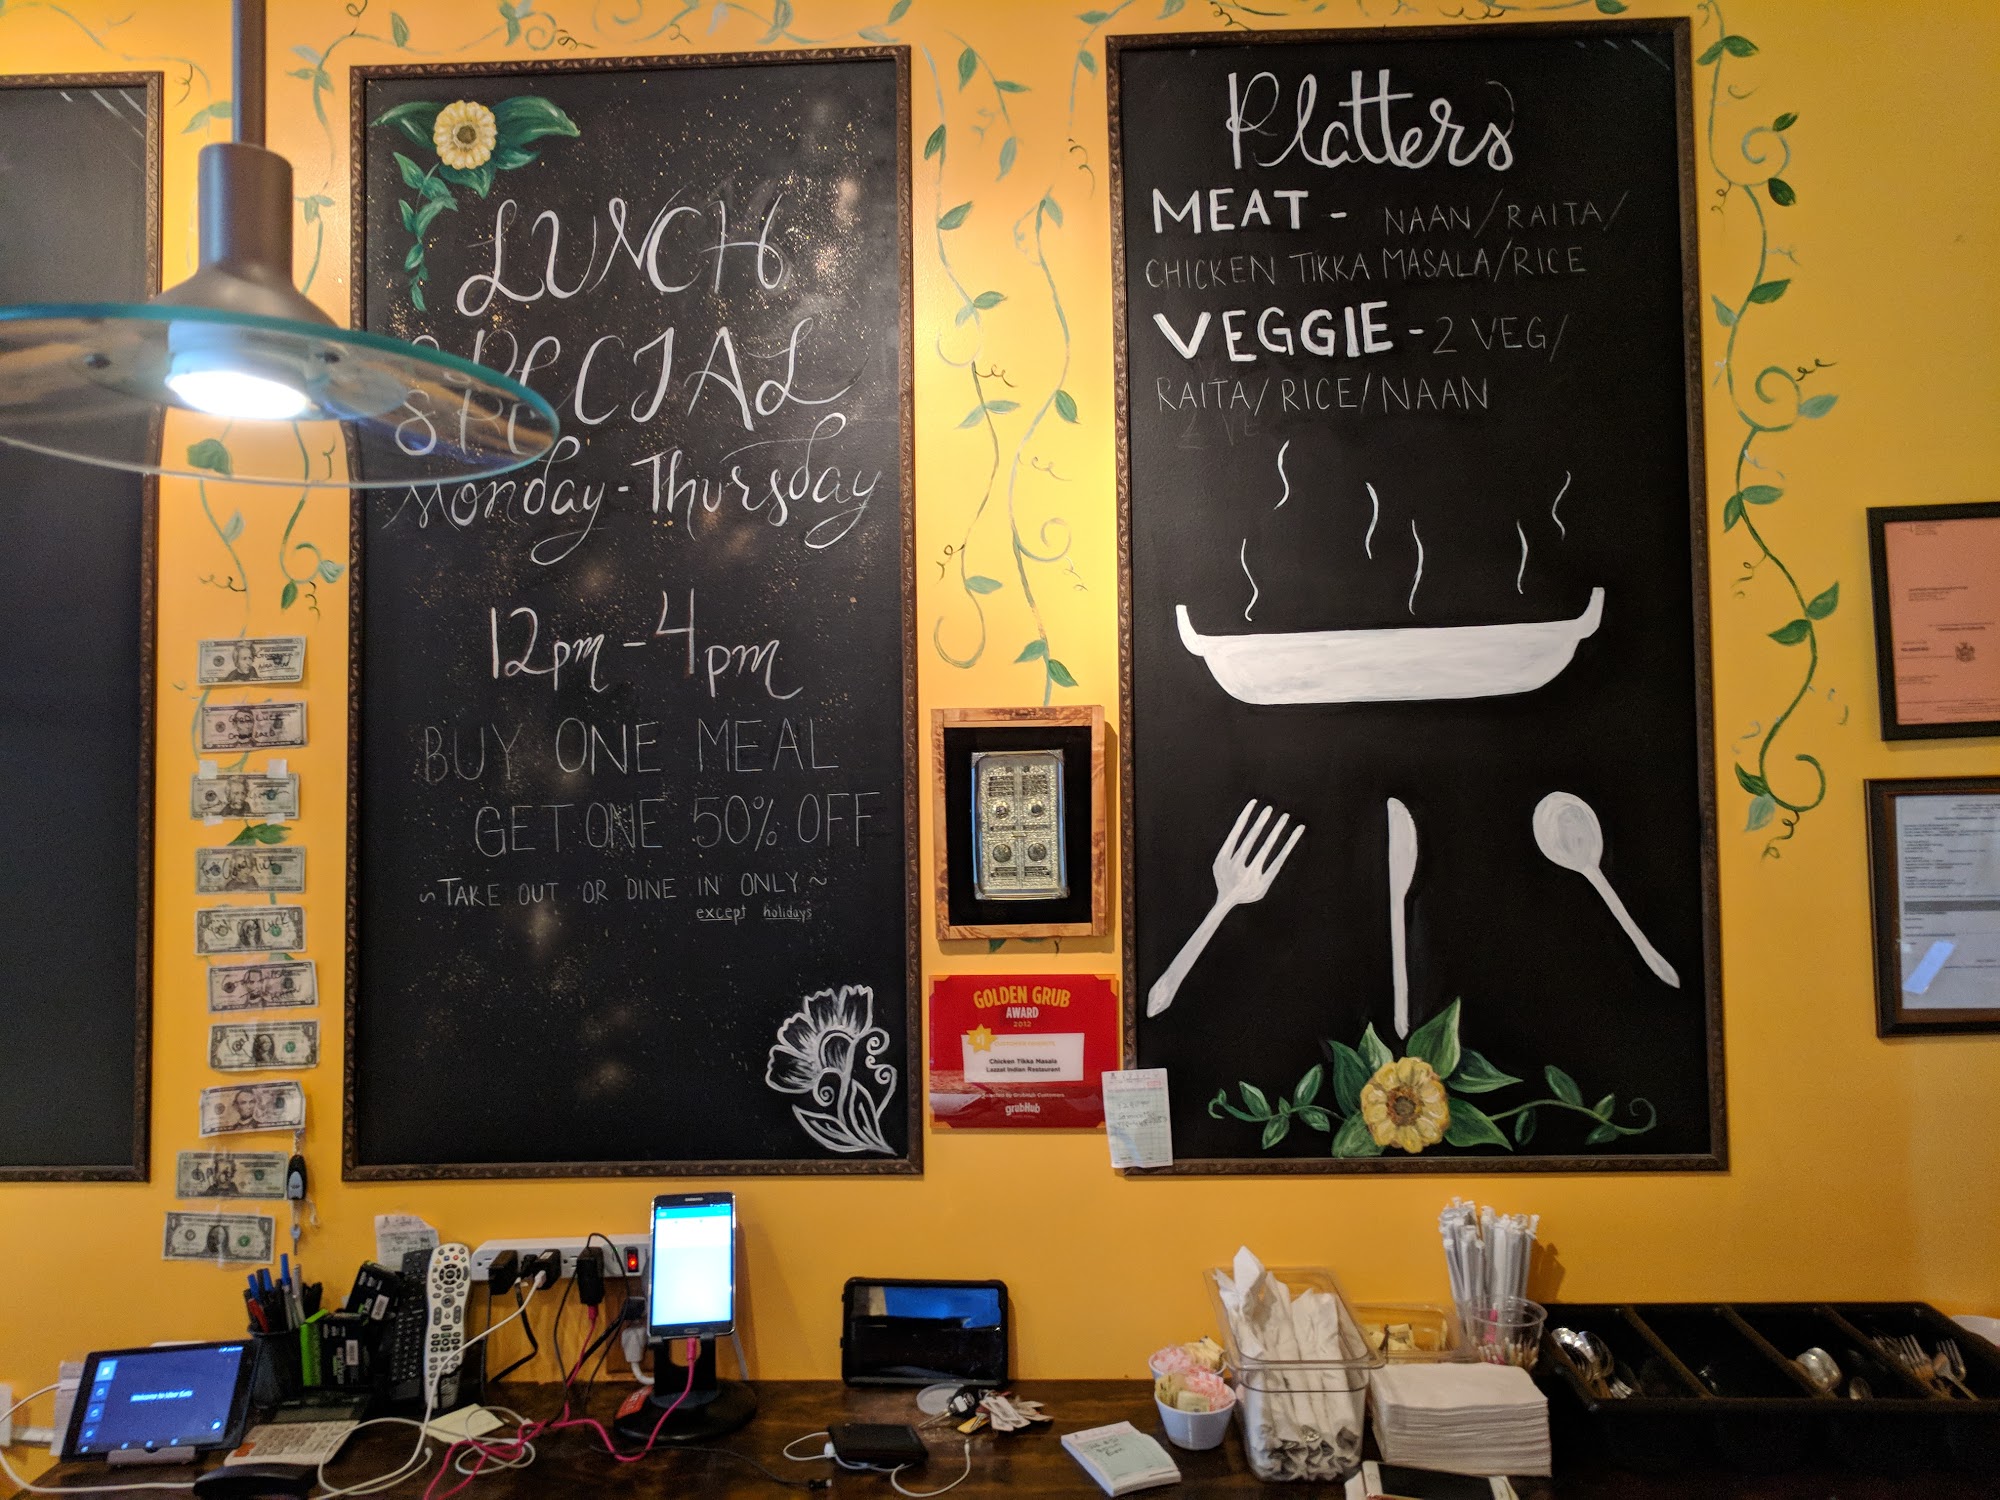 LUNCH
SPECIAL
Monday - Thursday
12pm - 4pm
BUY ONE MEAL
GET ONE 50% OFF
~TAKE OUT OR DINE IN ONLY~
except holidays
Platters
MEAT - NAAN/RAITA/
CHICKEN TIKKA MASALA/RICE
VEGGIE - 2 VEG/
RAITA/RICE/NAAN
2 VE
GOLDEN GRUB
AWARD
2012
#1 CUSTOMER FAVORITE
Chicken Tikka Masala
Lazzat Indian Restaurant
grubHub
Welcome to Uber Eats
SAMSUNG